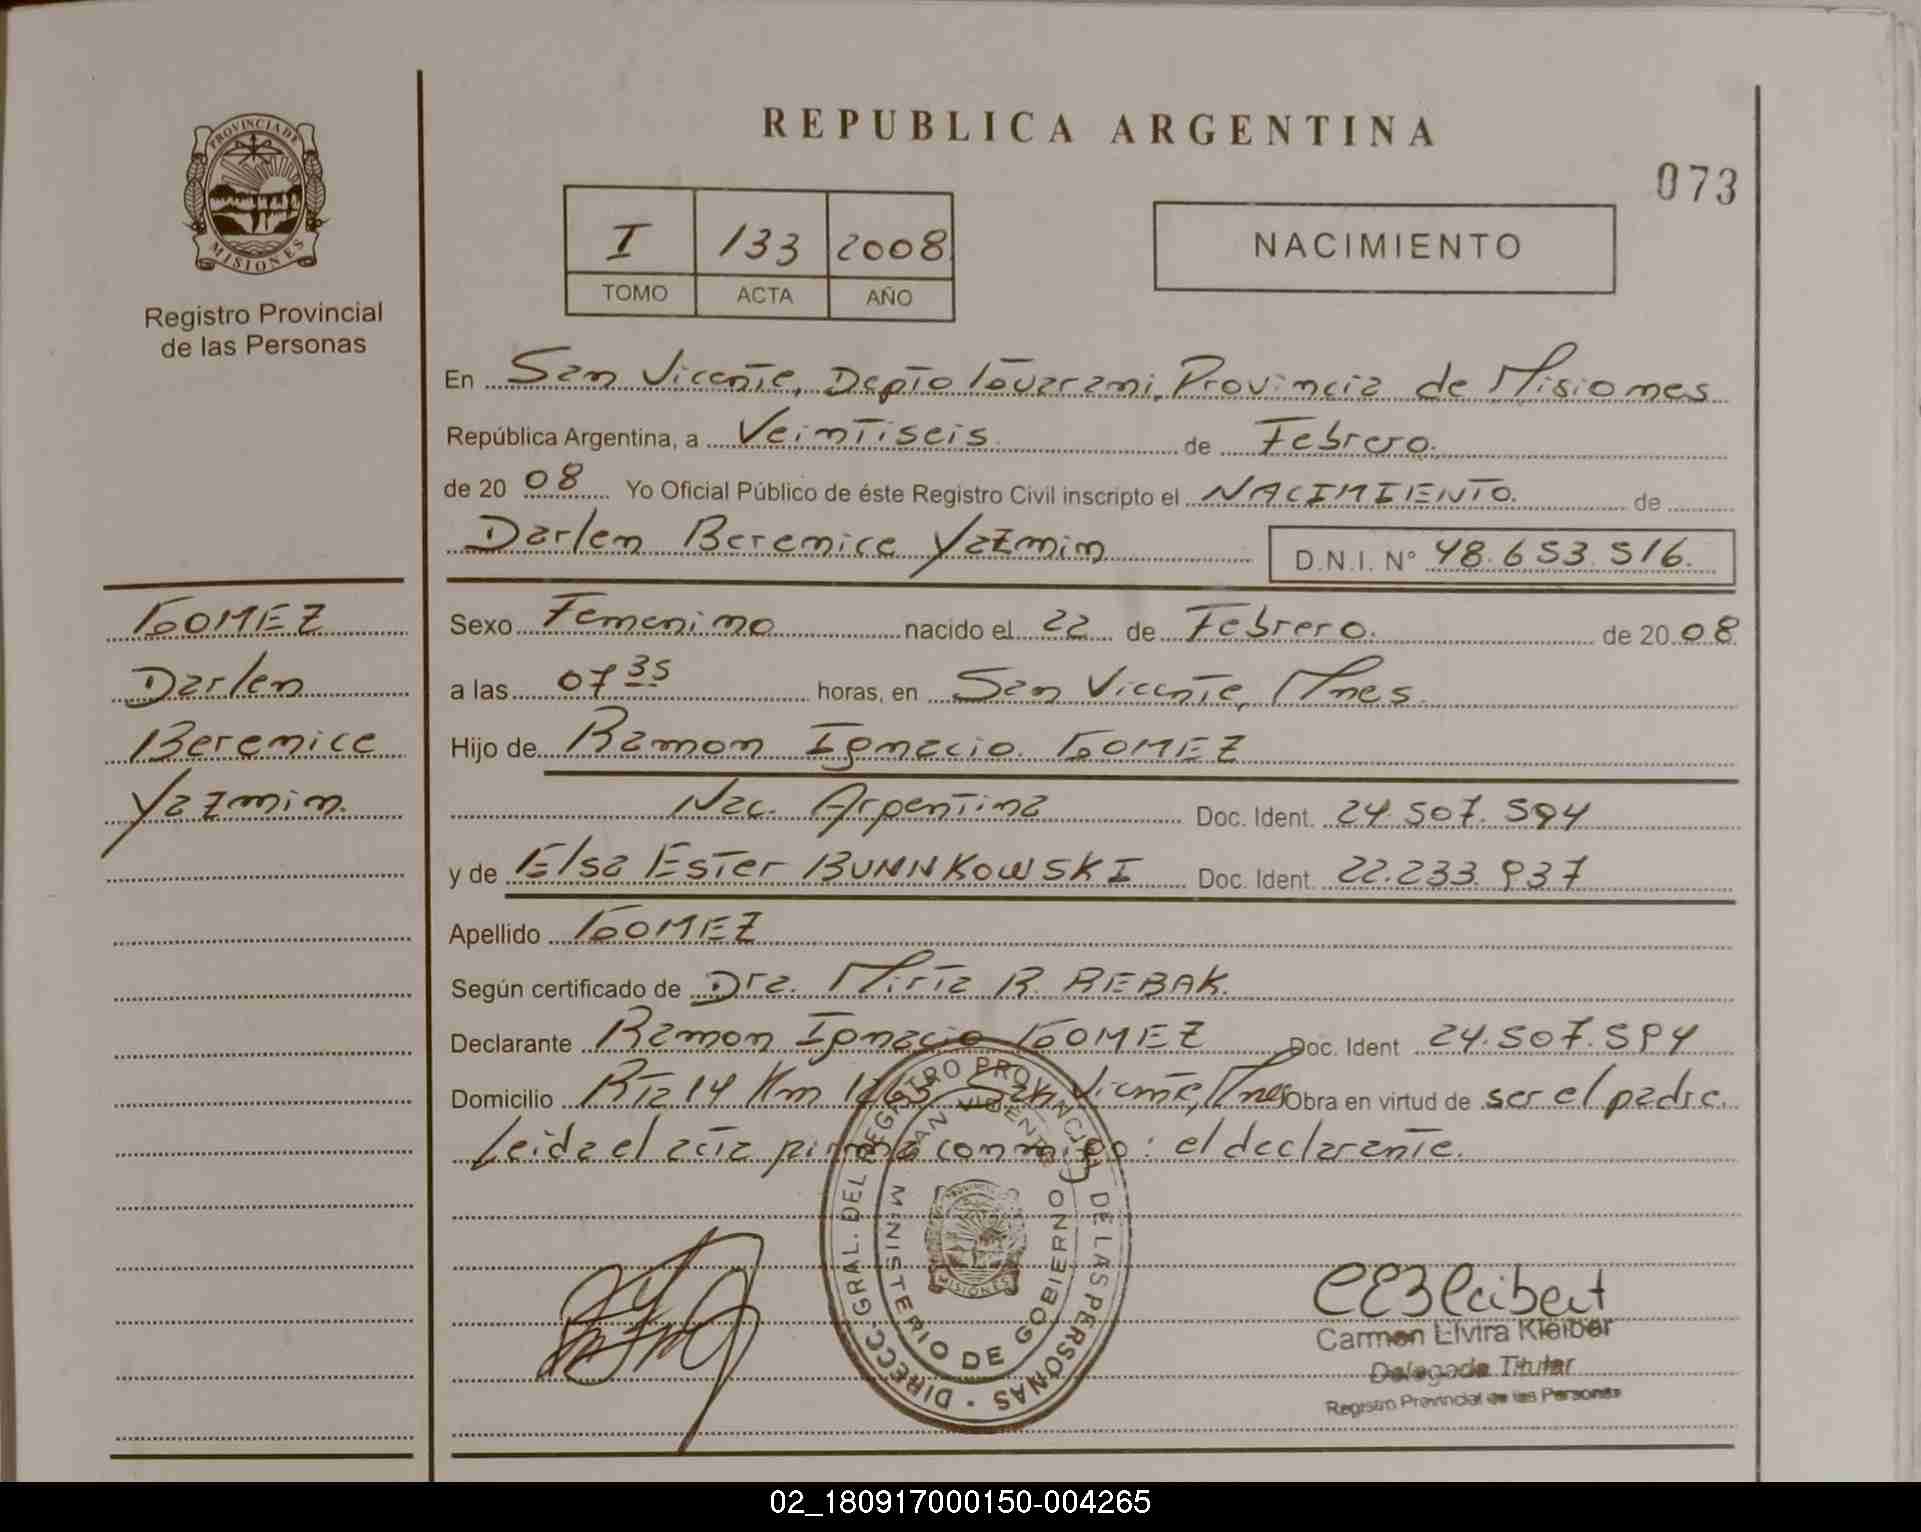 REPUBLICA ARGENTINA
073
PROVINCIA DE MISIONES
Registro Provincial
de las Personas
I 133 2008
TOMO ACTA AÑO
NACIMIENTO
En San Vicente, Depto Guarani, Provincia de Misiones
República Argentina, a Veintiseis de Febrero.
de 20 08 Yo Oficial Público de éste Registro Civil inscripto el NACIMIENTO. de
Darlen Berenice Yazmin D.N.I. Nº 48.653.516.
GOMEZ
Darlen
Berenice
Yazmin.
Sexo Femenino nacido el 22 de Febrero. de 20 08
a las 07 35 horas, en San Vicente, Mnes.
Hijo de Ramon Ignacio GOMEZ
Nac. Argentina Doc. Ident. 24.507.594
y de Elsa Ester BUNNKOWSKI Doc. Ident. 22.233.937
Apellido GOMEZ
Según certificado de Dra. Mirta R. REBAK.
Declarante Ramon Ignacio GOMEZ Doc. Ident 24.507.594
Domicilio Rta 14 Km 1263 San Vicente, Mnes Obra en virtud de ser el padre.
Leida el acta firma conmigo: el declarante.
DIRECC. GRAL. DEL REGISTRO PROVINCIAL DE LAS PERSONAS
SAN VICENTE
MINISTERIO DE GOBIERNO
MISIONES
Carmen Elvira Kleiber
Delegada Titular
Registro Provincial de las Personas
02_180917000150-004265